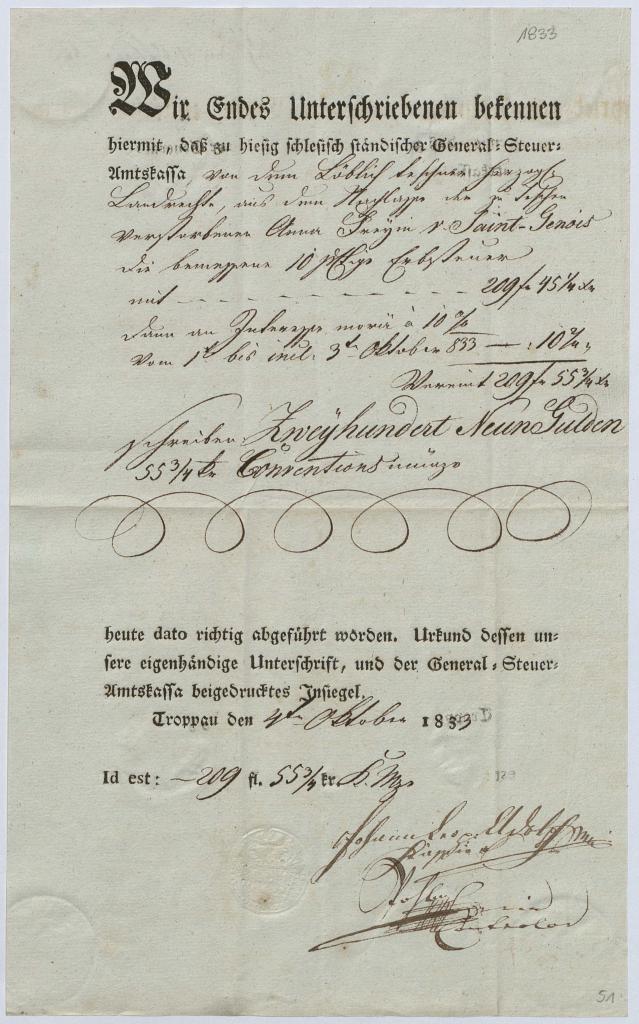 1833
Wir Endes Unterschriebenen bekennen
hiermit, daß zu hiesig schlesisch ständischer General-Steuer-
Amtskassa, von dem Löblich teschner herzogl.
Landrechte, aus dem Nachlasse der zu Teschen
verstorbenen Anna Freyin v. Saint-Genois
die bemessene 10 Erbsteuer
mit — — — — — — — 209 fr 45 1/4 kr
dann an Interesse morä à 10 %
vom 1t bis incl. 3t Oktober 833 — : 10 2/4 :
Vereint 209 fr 55 3/4 kr
schreiben Zweyhundert Neun Gulden
55 3/4 kr Conventionsmünze
heute dato richtig abgeführt worden. Urkund dessen un-
sere eigenhändige Unterschrift, und der General-Steuer-
Amtskassa beigedrucktes Insiegel.
Troppau den 4tn Oktober 1833
Id est: —209 fl. 55 3/4 kr. K. Mze
Johann Adolph
51